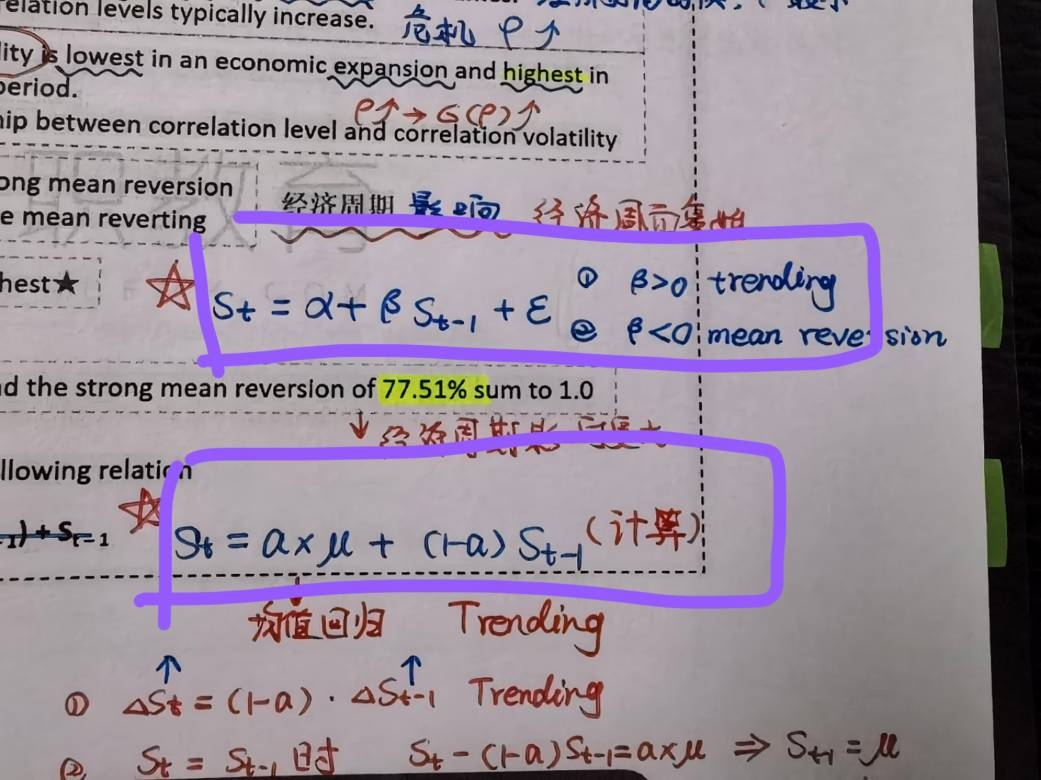 relation levels typically increase. 危机 ρ↑
lity is lowest in an economic expansion and highest in
period.
ρ↑ → σ(ρ)↑
hip between correlation level and correlation volatility
ong mean reversion
经济周期 影响 经济周
e mean reverting
hest★
☆ St = α + β St-1 + ε ① β>0 trending
② β<0 mean reversion
d the strong mean reversion of 77.51% sum to 1.0
↓ 经济周期影响更大
llowing relation
1) + St-1 ☆ St = a×μ + (1-a) St-1 (计算)
均值回归 Trending
① ΔSt = (1-a) · ΔSt-1 Trending
② St = St-1 时 St - (1-a)St-1 = a×μ ⇒ St-1 = μ